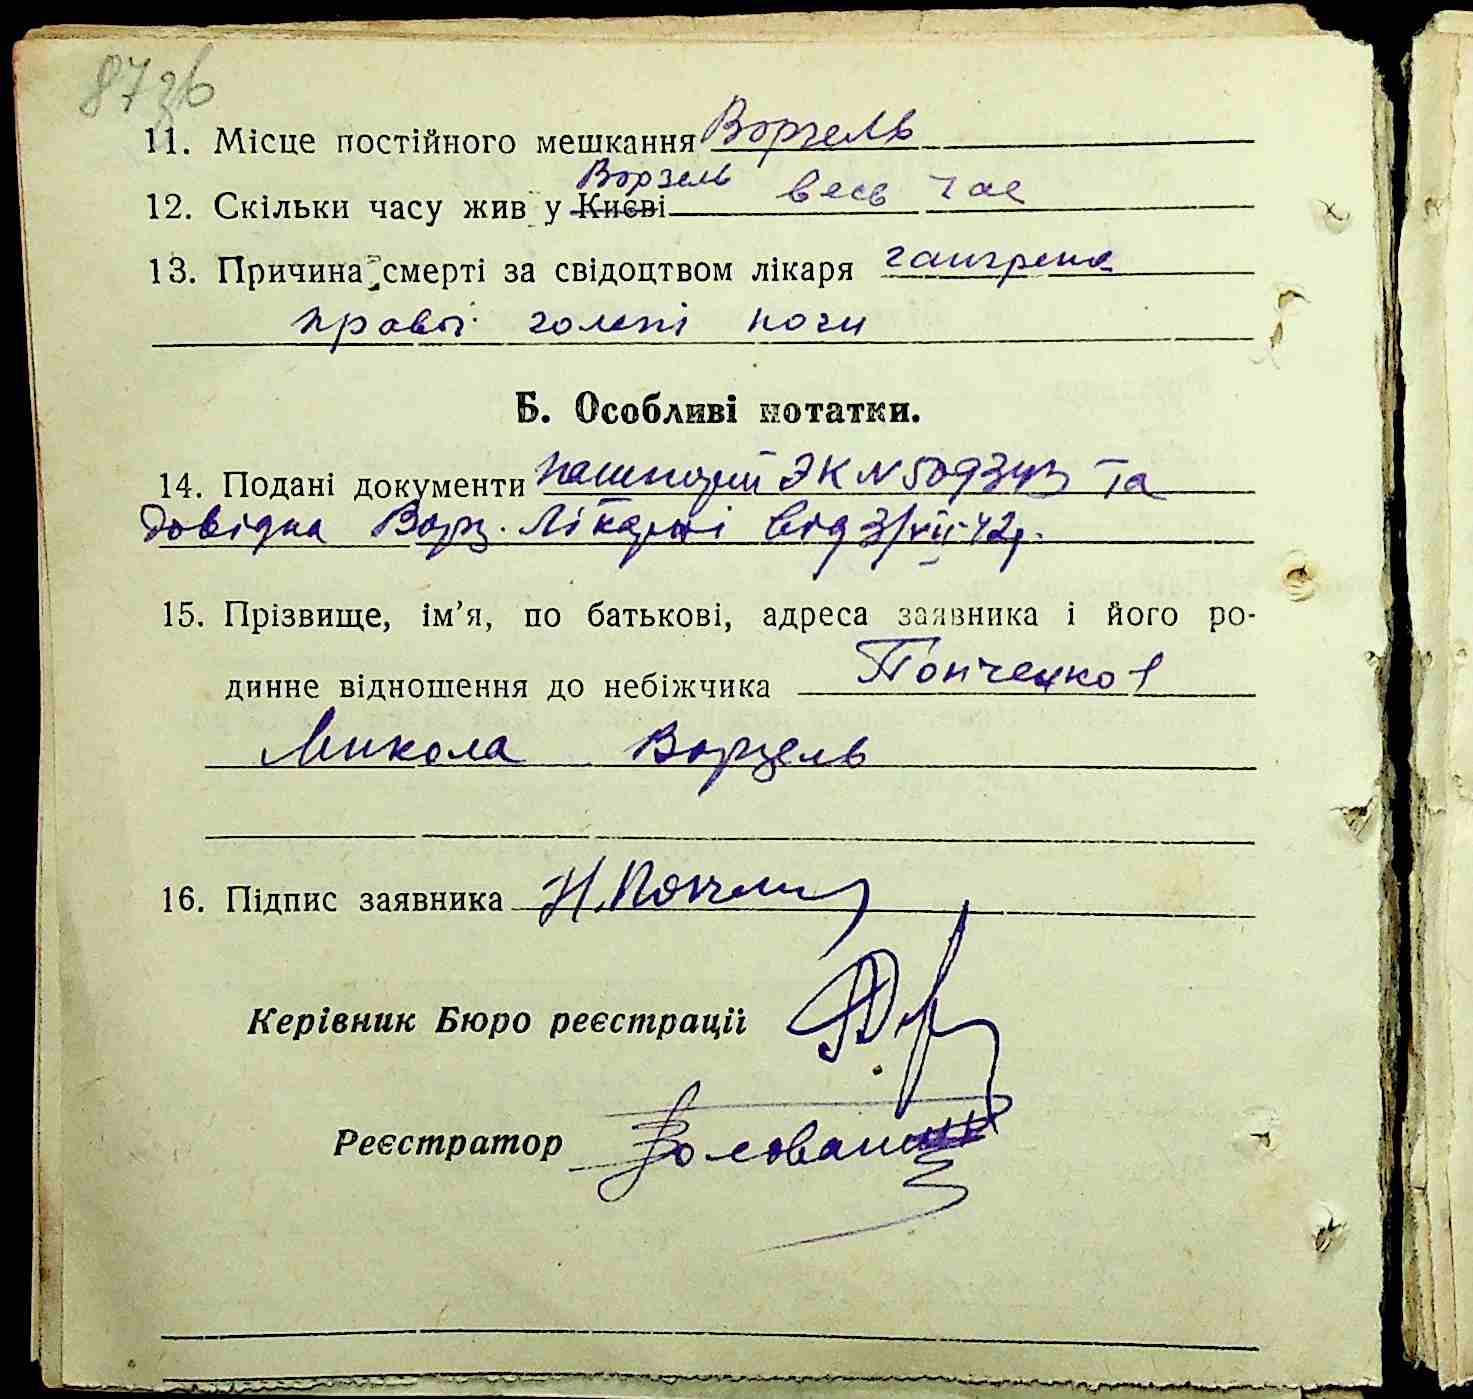 87зв
11. Місце постійного мешкання Ворзель
Ворзель
12. Скільки часу жив у Києві весь час
13. Причина смерті за свідоцтвом лікаря гангрена
правої голені ноги
Б. Особливі нотатки.
14. Подані документи пашпорт ЭК N 509343 та
довідка Ворз. Лікарні від 3/VII-42р.
15. Прізвище, ім’я, по батькові, адреса заявника і його ро-
динне відношення до небіжчика Понченко
Микола Ворзель
16. Підпис заявника Н.
Керівник Бюро реєстрації
Реєстратор